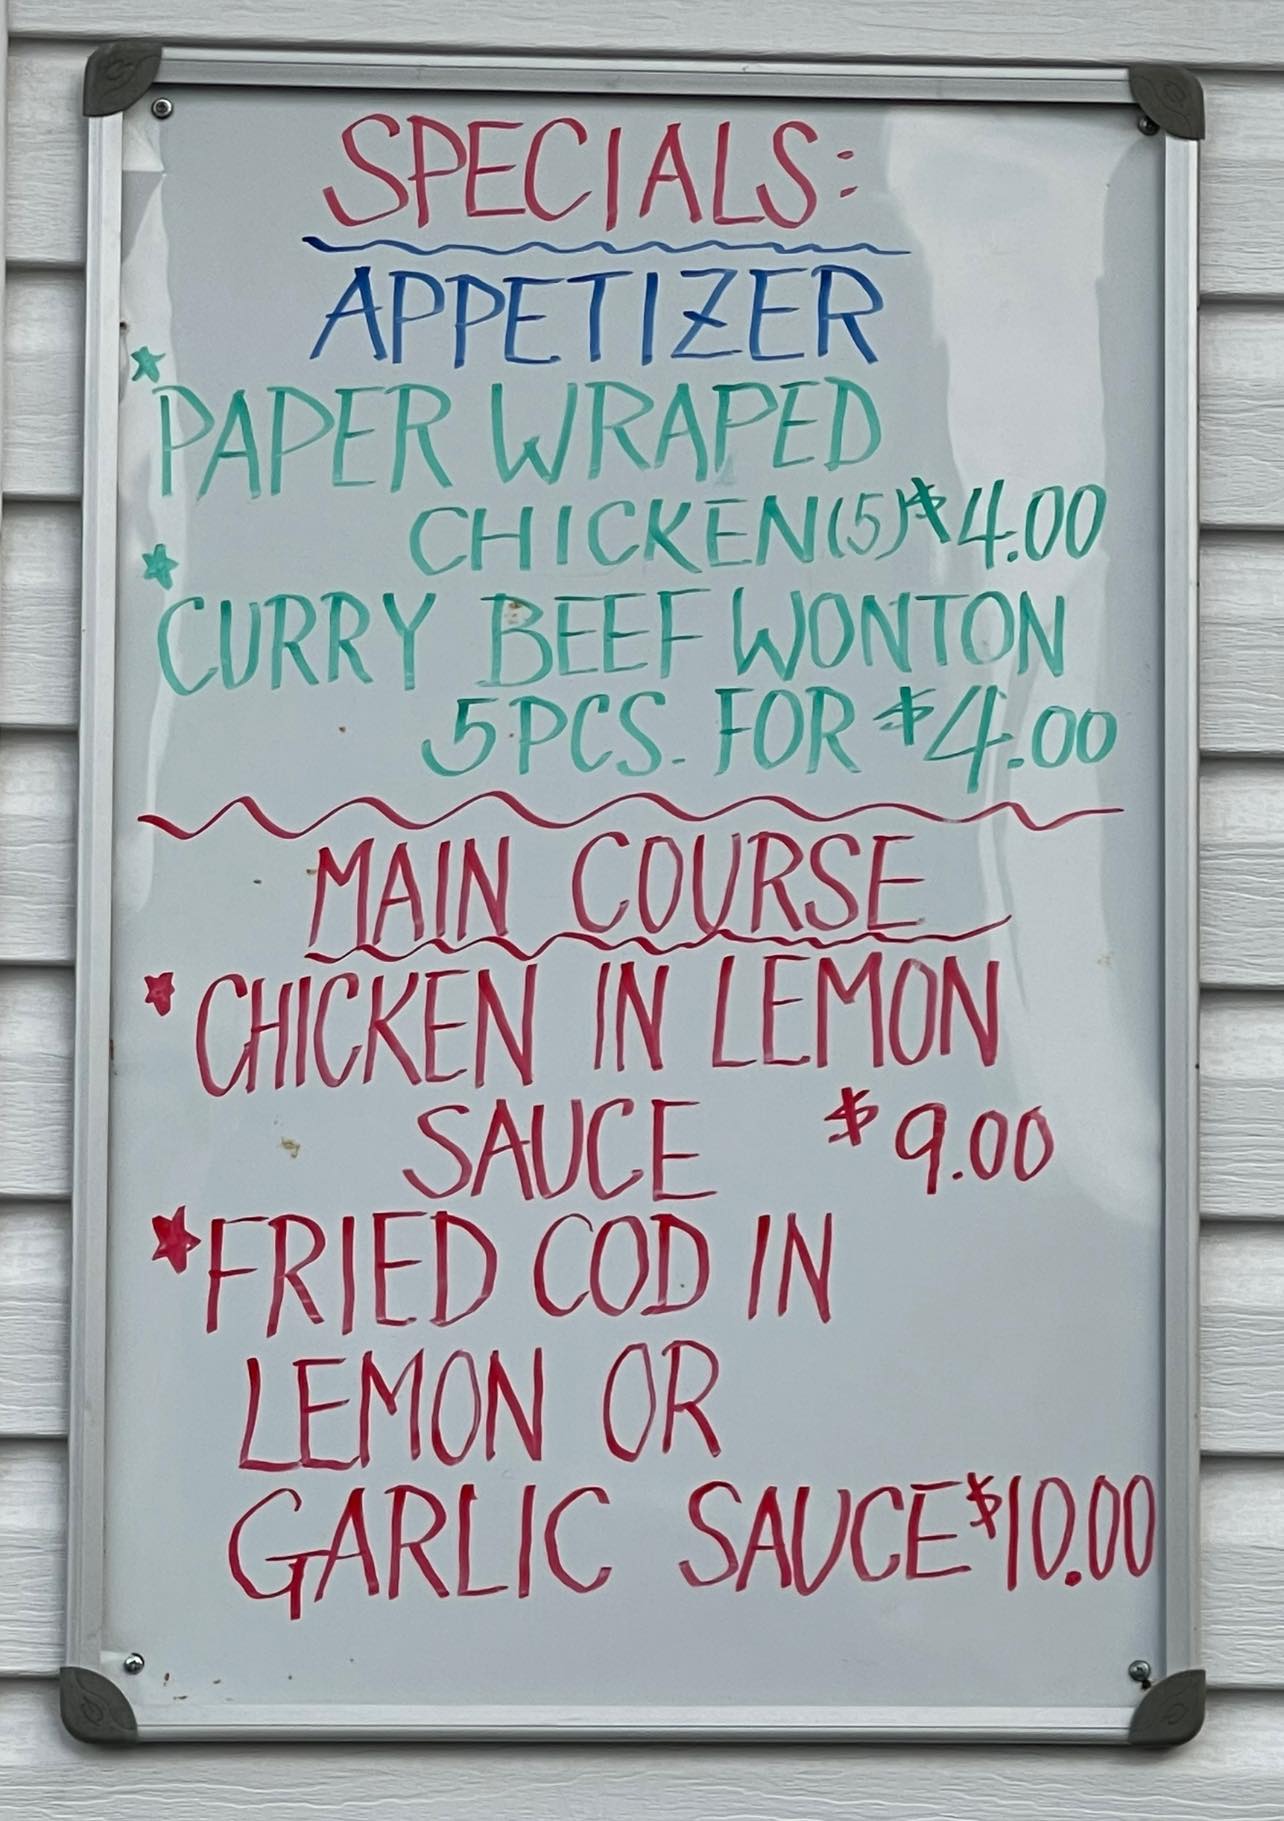 SPECIALS:
APPETIZER
PAPER WRAPED
CHICKEN(5)$4.00
CURRY BEEF WONTON
5PCS. FOR $4.00
MAIN COURSE
CHICKEN IN LEMON
SAUCE $9.00
FRIED COD IN
LEMON OR
GARLIC SAUCE $10.00